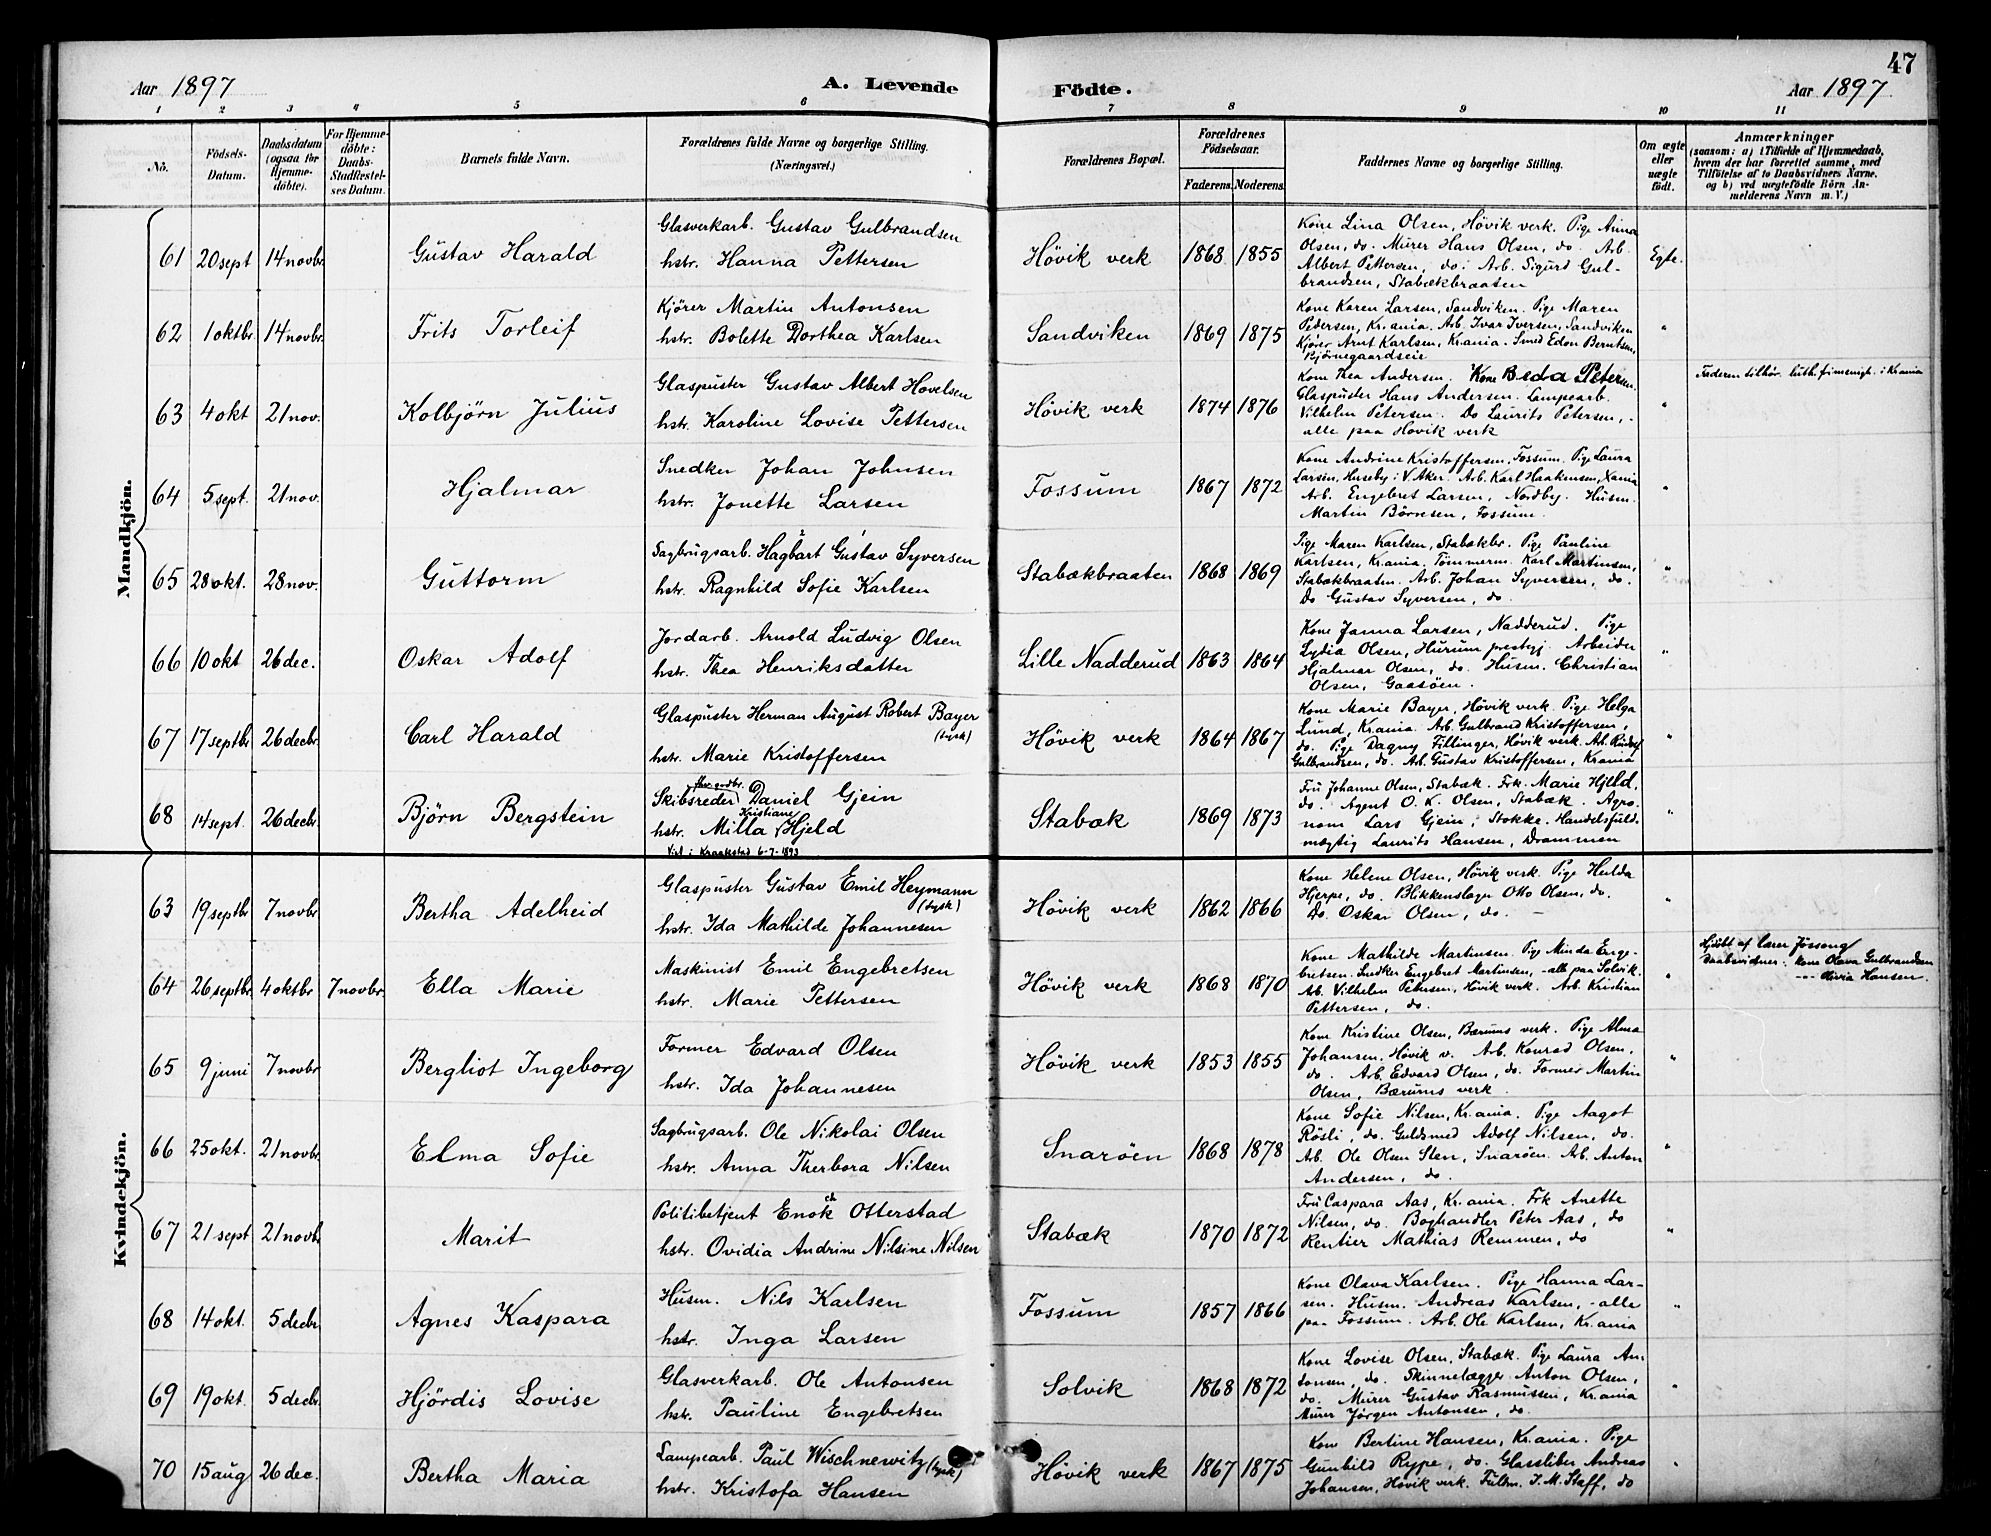 47
Aar 1897
A. Levende
Födte.
Aar 1897
1 2 3 4 5 6 7 8 9 10 11
No.
Födsels-
Datum.
Daabsdatum
(ogsaa for
Hjemme-
döbte).
For Hjemme-
döbte:
Daabs-
Stadfæstel-
ses Datum.
Barnets fulde Navn.
Forældrenes fulde Navne og borgerlige Stilling.
(Næringsvei.)
Forældrenes Bopæl.
Forældrenes
Födselsaar.
Faderens. Moderens.
Faddernes Navne og borgerlige Stilling.
Om ægte
eller
uægte
födt.
Anmærkninger
(saasom: a) i Tilfælde af Hjemmedaab,
hvem der har forrettet samme, med
Tilföielse af to Daabsvidners Navne,
og b) ved uægtefödte Börn An-
melderens Navn m. V.)
Mandkjön.
61 20 sept 14 novbr. Gustav Harald
Glasverkarb. Gustav Gulbrandsen
hstr. Hanna Pettersen
Hövik verk 1868 1855
Kone Lina Olsen, Hövik verk. Pige Anna
Olsen, do. Murer Hans Olsen, do. Arb.
Albert Pettersen, do. Arb. Sigurd Gul-
brandsen, Stabækbraaten
Egte.
62 1 oktbr. 14 novbr. Frits Torleif
Kjörer Martin Antonsen
hstr. Bolette Dorthea Karlsen
Sandviken 1869 1875
Kone Karen Larsen, Sandviken. Pige Maren
Pedersen, Kr.ania. Arb. Ivar Iversen, Sandviken
Kjörer Arnt Karlsen, Kr.ania. Smed Edon Berntsen,
Björnegaardseie
"
63 4 okt 21 nov. Kolbjörn Julius
Glaspuster Gustav Albert Hovelsen
hstr. Karoline Lovise Pettersen
Hövik verk 1874 1876
Kone Thea Andersen. Kone Beda Petersen.
Glaspuster Hans Andersen. Lampearb.
Vilhelm Petersen. Do Laurits Petersen, -
alle paa Hövik verk
"
Faderen tilhör. luth. frimenigh. i Kr.ania
64 5 sept. 21 nov. Hjalmar
Snedker Johan Johnsen
hstr. Jonette Larsen
Fossum 1867 1872
Kone Andrine Kristoffersen, Fossum. Pige Laura
Larsen, Huseby i V. Aker. Arb. Karl Haakensen, Xania
Arb. Engebret Larsen, Nordby. Husm.
Martin Börnsen, Fossum.
"
65 28 okt. 28 nov. Guttorm
Sagbrugsarb. Hagbart Gustav Syversen
hstr. Ragnhild Sofie Karlsen
Stabækbraaten 1868 1869
Pige Maren Karlsen, Stabækbr. Pige Pauline
Karlsen, Kr.ania. Tömmerm. Karl Martinsen,
Stabækbraaten. Arb. Johan Syversen, do.
Do Gustav Syversen, do.
"
66 10 okt 26 dec. Oskar Adolf
Jordarb. Arnold Ludvig Olsen
hstr. Thea Henriksdatter
Lille Nadderud 1863 1864
Kone Janna Larsen, Nadderud. Pige
Lydia Olsen, Hurum prestgj. Arbeider
Hjalmar Olsen, do. Husm. Christian
Olsen, Gaasöen.
"
67 17 septbr 26 decbr. Carl Harald
Glaspuster Herman August Robert Bayer
(tysk)
hstr. Marie Kristoffersen
Hövik verk 1864 1867
Kone Marie Bayer, Hövik verk. Pige Helga
Lund, Kr.ania. Arb. Gulbrand Kristoffersen,
do. Pige Dagny Fillinger, Hövik verk. Arb. Rudolf
Gulbrandsen, do. Arb. Gustav Kristoffersen, Kr.ania
"
68 14 sept. 26 decbr. Björn Bergstein
Skibsreder Daniel Gjein
Kristiane
hstr. Milla Hjeld
Viet i Kraakstad 6-7-1893
Stabæk 1869 1873
Fru Johanne Olsen, Stabæk. Frk. Marie Hjeld,
do. Agent O. K. Olsen, Stabæk. Agro-
nom Lars Gjein, Stokke. Handelsfuld-
mægtig Laurits Hansen, Drammen
"
Kvindekjön.
63 19 septbr 7 novbr Bertha Adelheid
Glaspuster Gustav Emil Heymann
(tysk)
hstr. Ida Mathilde Johannesen
Hövik verk 1862 1866
Kone Helene Olsen, Hövik verk. Pige Hulda
Hjerpe, do. Blikkenslager Otto Olsen, do.
Do. Oskar Olsen, do.
"
64 26 septbr. 4 oktbr 7 novbr. Ella Marie
Maskinist Emil Engebretsen
hstr. Marie Pettersen
Hövik verk 1868 1870
Kone Mathilde Martinsen. Pige Minda Enge-
bretsen. Snedker Engebret Martinsen, - alle paa Solvik.
Arb. Vilhelm Petersen, Hövik verk. Arb. Kristian
Pettersen, do.
"
Hjdöbt af lærer Jössong
Daabsvidner: Kone Olava Gulbrandsen
-"- Olivia Hansen.
65 9 juni 7 novbr Bergliot Ingeborg
Former Edvard Olsen
hstr. Ida Johannesen
Hövik verk 1853 1855
Kone Kristine Olsen, Bærums verk. Pige Alma
Johansen, Hövik v. Arb. Konrad Olsen,
do. Arb. Edvard Olsen, do. Former Martin
Olsen, Bærums verk
"
66 25 okt. 21 novbr. Elma Sofie
Sagbrugsarb. Ole Nikolai Olsen
hstr. Anna Therbora Nilsen
Snaröen 1868 1878
Kone Sofie Nilsen, Kr.ania. Pige Aagot
Rösli, do. Guldsmed Adolf Nilsen, do.
Arb. Ole Olsen Sten, Snaröen. Arb. Anton
Andersen, do.
"
67 21 sept 21 novb. Marit
Politibetjent Enok Otterstad
hstr. Ovidia Andrine Nilsine Nilsen
Stabæk 1870 1872
Fru Caspara Aas, Kr.ania. Frk Anette
Nilsen, do. Boghandler Peter Aas, do
Rentier Mathias Remmen, do
"
68 14 okt. 5 decbr Agnes Kaspara
Husm. Nils Karlsen
hstr. Inga Larsen
Fossum 1857 1866
Kone Olava Karlsen. Pige Hanna Lar-
sen. Husm. Andreas Karlsen, - alle
paa Fossum. Arb. Ole Karlsen, Kr.ania
"
69 19 okt. 5 decbr. Hjördis Lovise
Glasverkarb. Ole Antonsen
hstr. Pauline Engebretsen
Solvik 1868 1872
Kone Lovise Olsen, Stabæk. Pige Laura An-
tonsen, do. Skinnelægger Anton Olsen,
do. Murer Gustav Rasmussen, Kr.ania
Murer Jörgen Antonsen, do.
"
70 15 aug 26 dec. Bertha Maria
Lampearb. Paul Wischnewitz (tysk)
hstr. Kristofa Hansen
Hövik verk 1867 1875
Kone Bertine Hansen, Kr.ania. Pige
Gunhild Rype, do. Glassliber Andreas
Johansen, Hövik verk. Fuldm. I. M. Staff, do
"